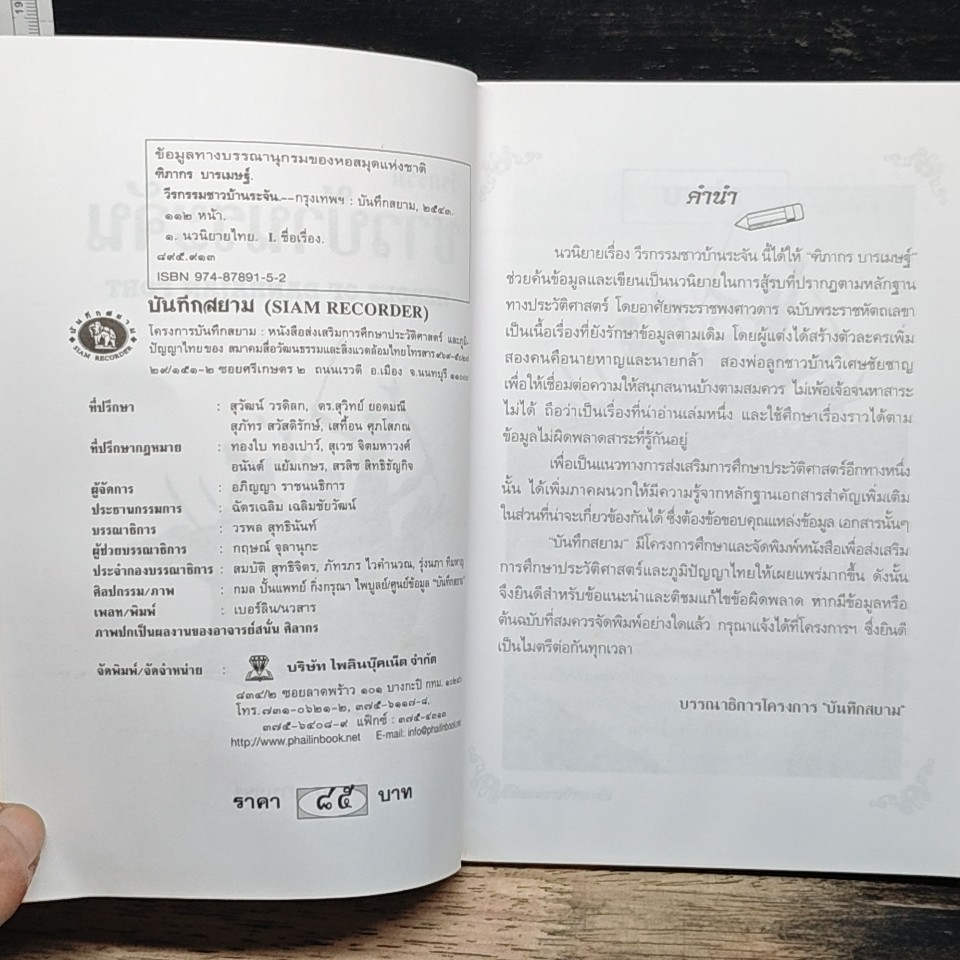 ข้อมูลทางบรรณานุกรมของหอสมุดแห่งชาติ
ฑิภากร บารเมษฐ์.
วีรกรรมชาวบ้านระจัน.--กรุงเทพฯ : บันทึกสยาม, ๒๕๔๓.
๑๑๒ หน้า.
๑. นวนิยายไทย. I. ชื่อเรื่อง.
๘๙๕.๙๑๓
ISBN 974-87891-5-2
บันทึกสยาม (SIAM RECORDER)
บันทึกสยาม
SIAM RECORDER
โครงการบันทึกสยาม : หนังสือส่งเสริมการศึกษาประวัติศาสตร์ และภูมิ-
ปัญญาไทยของ สมาคมสื่อวัฒนธรรมและสิ่งแวดล้อมไทยโทรสาร
๒๙/๑๕๑-๒ ซอยศรีเกษตร ๒ ถนนเรวดี อ.เมือง จ.นนทบุรี ๑๑๐๐๐
ที่ปรึกษา : สุวัฒน์ วรดิลก, ดร.สุวิทย์ ยอดมณี
สุภัทร สวัสดิรักษ์, เสทื้อน ศุภโสภณ
ที่ปรึกษากฎหมาย : ทองใบ ทองเปาว์, สุเวช จิตมหาวงศ์
อนันต์ แย้มเกษร, สรสิช สิทธิธัญกิจ
ผู้จัดการ : อภิญญา ราชนนธิการ
ประธานกรรมการ : ฉัตรเฉลิม เฉลิมชัยวัฒน์
บรรณาธิการ : วรพล สุทธินันท์
ผู้ช่วยบรรณาธิการ : กฤษณ์ จุลานุกะ
ประจำกองบรรณาธิการ : สมบัติ สุทธิจิตร, ภัทรภร ไวคำนวณ, รุ่งนภา
ศิลปกรรม/ภาพ : กมล ปั้นแพทย์ กิ่งกรุณา ไพบูลย์/ศูนย์ข้อมูล "บันทึกสยาม"
เพลท/พิมพ์ : เบอร์ลิน/นวสาร
ภาพปกเป็นผลงานของอาจารย์สนั่น ศิลากร
จัดพิมพ์/จัดจำหน่าย : บริษัท ไพลินบุ๊คเน็ต จำกัด
๘๓๔/๒ ซอยลาดพร้าว ๑๐๑ บางกะปิ กทม. ๑๐๒๔๐
โทร.๗๓๑-๐๖๒๑-๒, ๓๗๕-๖๑๑๗-๘,
๓๗๕-๖๔๐๘-๙ แฟ็กซ์ : ๓๗๕-๔๓๑๓
http://www.phailinbook.net E-mail: info@phailinbook.net
ราคา ๘๕ บาท
คำนำ
นวนิยายเรื่อง วีรกรรมชาวบ้านระจัน นี้ได้ให้ "ฑิภากร บารเมษฐ์"
ช่วยค้นข้อมูลและเขียนเป็นนวนิยายในการสู้รบที่ปรากฏตามหลักฐาน
ทางประวัติศาสตร์ โดยอาศัยพระราชพงศาวดาร ฉบับพระราชหัตถเลขา
เป็นเนื้อเรื่องที่ยังรักษาข้อมูลตามเดิม โดยผู้แต่งได้สร้างตัวละครเพิ่ม
สองคนคือนายหาญและนายกล้า สองพ่อลูกชาวบ้านวิเศษชัยชาญ
เพื่อให้เชื่อมต่อความให้สนุกสนานบ้างตามสมควร ไม่เพ้อเจ้อจนหาสาระ
ไม่ได้ ถือว่าเป็นเรื่องที่น่าอ่านเล่มหนึ่ง และใช้ศึกษาเรื่องราวได้ตาม
ข้อมูลไม่ผิดพลาดสาระที่รู้กันอยู่
เพื่อเป็นแนวทางการส่งเสริมการศึกษาประวัติศาสตร์อีกทางหนึ่ง
นั้น ได้เพิ่มภาคผนวกให้มีความรู้จากหลักฐานเอกสารสำคัญเพิ่มเติม
ในส่วนที่น่าจะเกี่ยวข้องกันได้ ซึ่งต้องข้อขอบคุณแหล่งข้อมูล เอกสารนั้นๆ
"บันทึกสยาม" มีโครงการศึกษาและจัดพิมพ์หนังสือเพื่อส่งเสริม
การศึกษาประวัติศาสตร์และภูมิปัญญาไทยให้เผยแพร่มากขึ้น ดังนั้น
จึงยินดีสำหรับข้อแนะนำและติชมแก้ไขข้อผิดพลาด หากมีข้อมูลหรือ
ต้นฉบับที่สมควรจัดพิมพ์อย่างใดแล้ว กรุณาแจ้งได้ที่โครงการฯ ซึ่งยินดี
เป็นไมตรีต่อกันทุกเวลา
บรรณาธิการโครงการ "บันทึกสยาม"